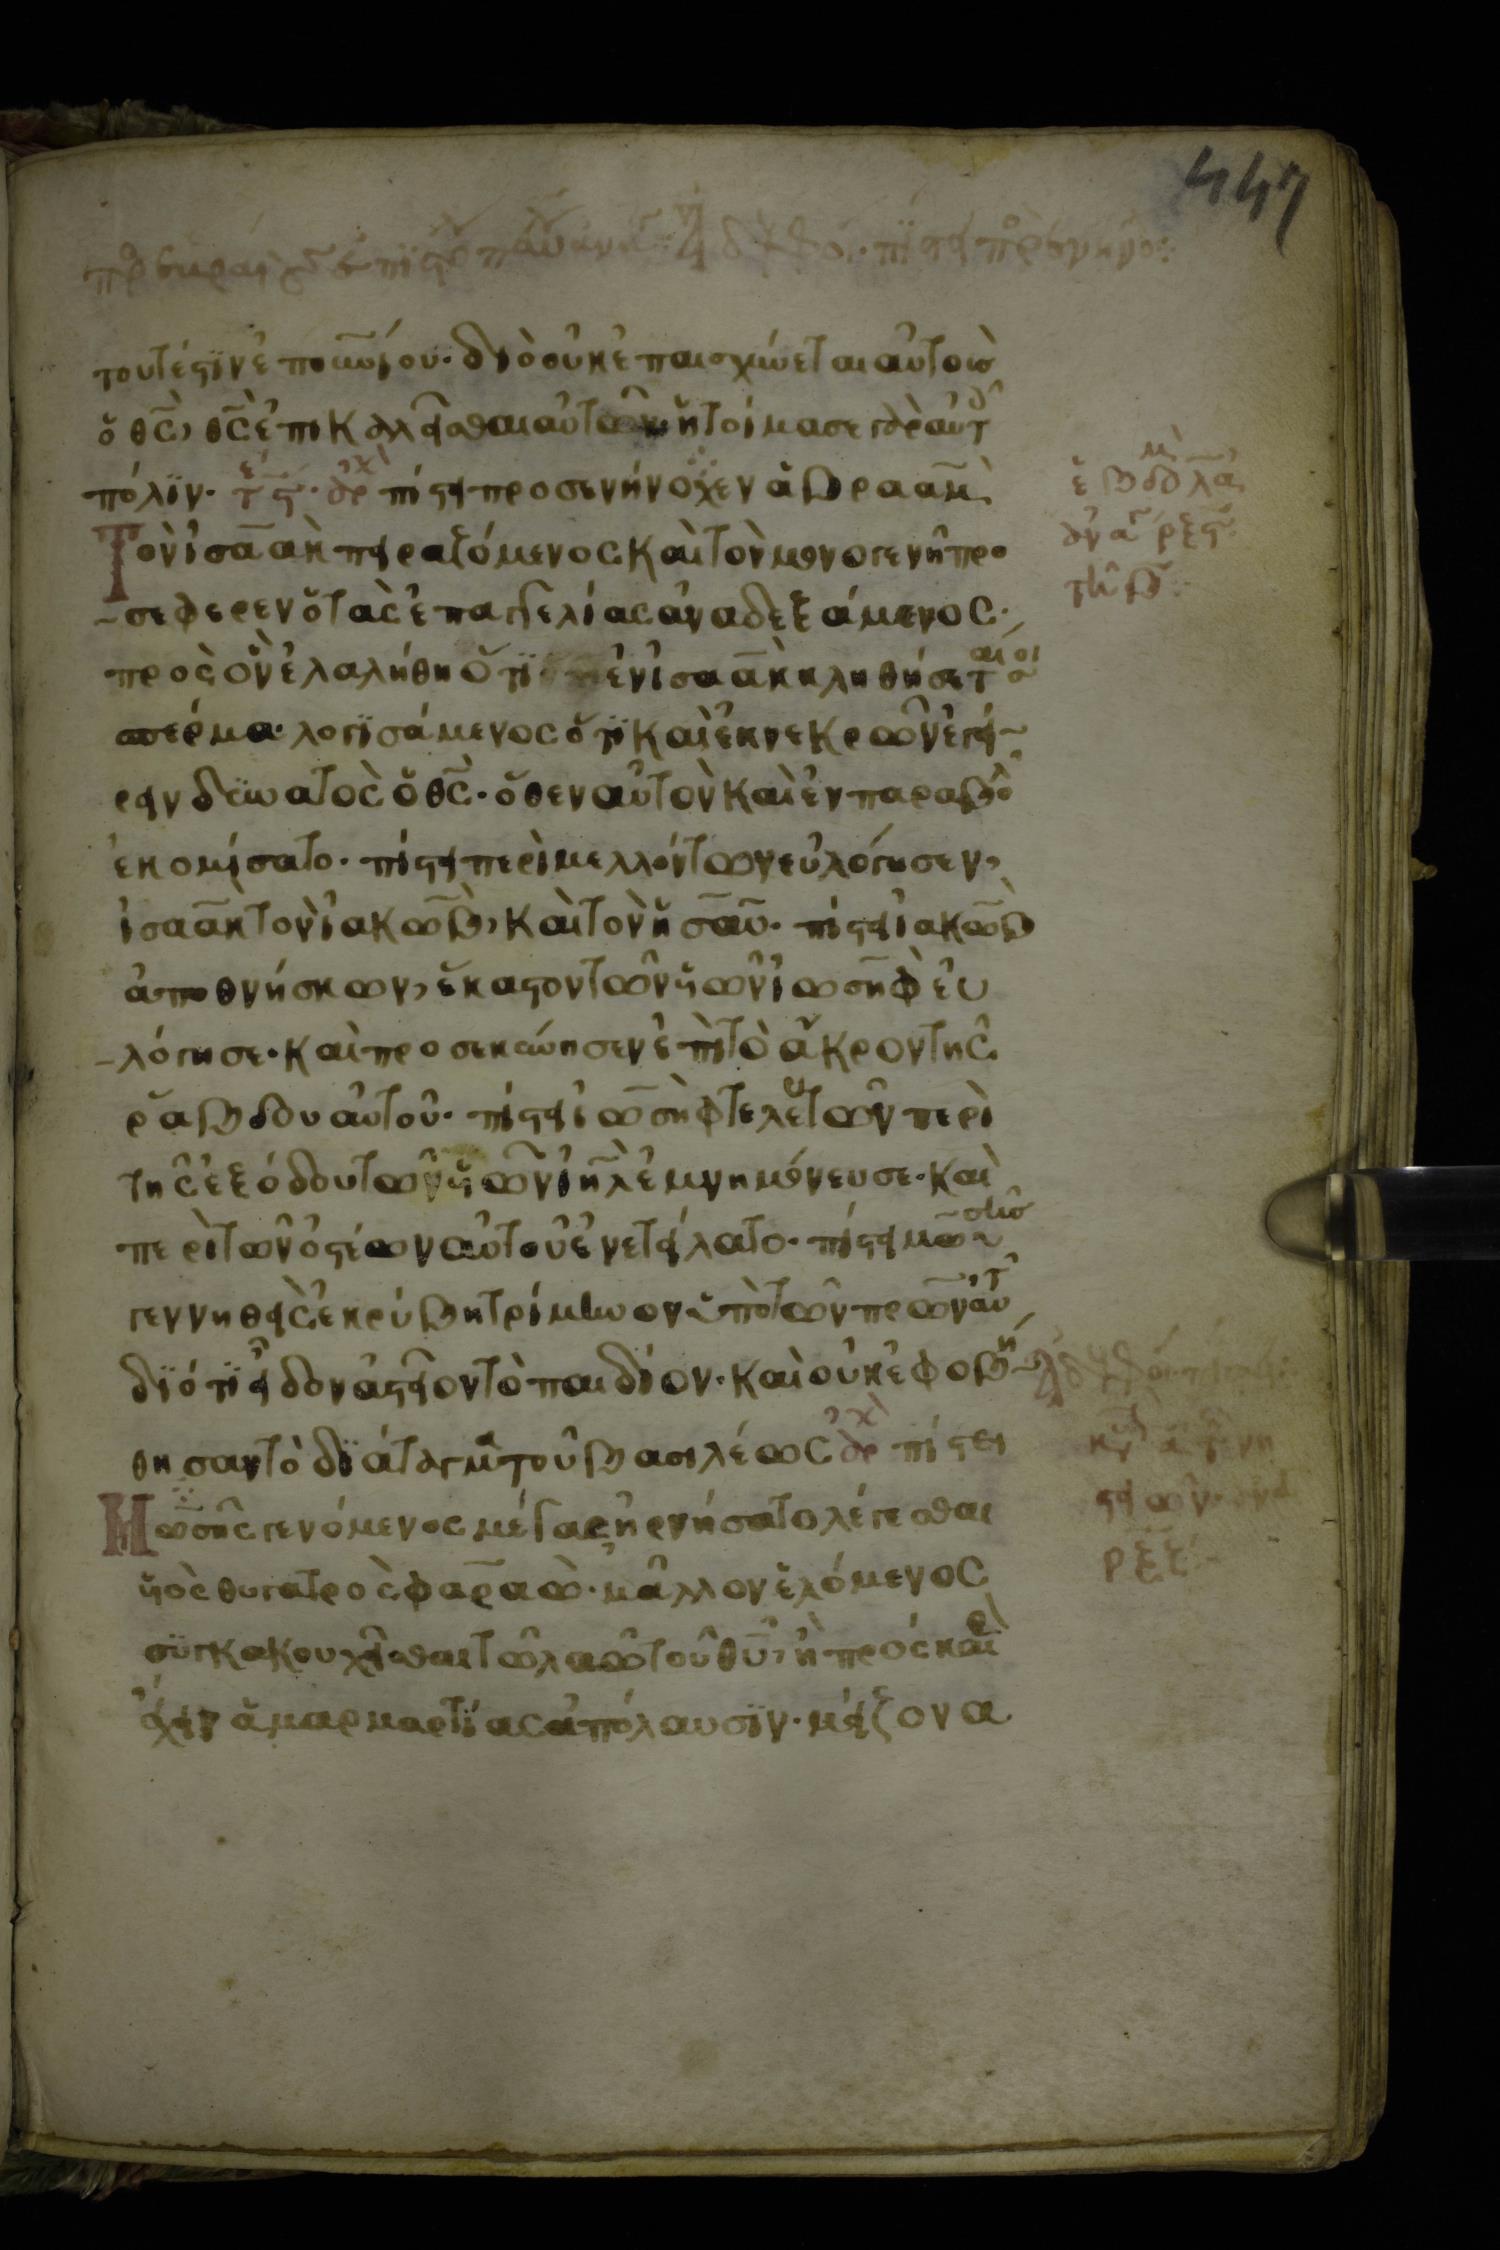 447
τουτέστιν ἐπουρανίου· διὸ οὐκ ἐπαισχύνεται αὐτοὺσ
ὁ θς̄, θς̄ ἐπικαλεῖσθαι αὐτῶν· ἡτοίμασε γὰρ αὐτ
πόλιν· πίστει προσενήνοχεν ἀβραὰμ
Τὸν ἰσαὰκ πειραζόμενος καὶ τὸν μονογενῆ προ
σεφερεν ὁ τὰς ἐπαγγελίας ἀναδεξάμενος·
πρὸς ὃν ἐλαλήθη ὅτι ἐν ἰσαὰκ κληθήσεταί σοι
σπέρμα· λογισάμενος ὅτι καὶ ἐκ νεκρῶν ἐγεί
ρειν δυνατὸς ὁ θς̄· ὅθεν αὐτὸν καὶ ἐν παραβο
ἐκομίσατο· πίστει περὶ μελλόντων εὐλόγησεν,
ἰσαὰκ τὸν ἰακὼβ, καὶ τὸν ἡσαῦ· πίστει ἰακὼβ
ἀποθνήσκων, ἕκαστον τῶν υἱῶν ἰωσὴφ εὐ
λόγησε· καὶ προσεκύνησεν ἐπὶ τὸ ἄκρον τῆς
ῥάβδου αὐτοῦ· πίστει ἰωσὴφ τελευτῶν περὶ
τῆς ἐξόδου τῶν υἱῶν ιηλ̄ ἐμνημόνευσε· καὶ
περὶ τῶν ὀστέων αὐτοῦ ἐνετείλατο· πίστει μωσῆσ
γεννηθεὶς ἐκρύβη τρίμηνον ὑπὸ τῶν πρων αὐτ
διότι εἶδον ἀστεῖον τὸ παιδίον· καὶ οὐκ ἐφοβή
θησαν τὸ διάταγμα τοῦ βασιλέως πίστει
Μωσῆς γενόμενος μέγας ἠρνήσατο λέγεσθαι
υἱὸς θυγατρὸς φαραώ· μᾶλλον ἑλόμενος
συγκακουχεῖσθαι τῶ λαῶ τοῦ θῡ, ἢ πρόσκαιρ
ἔχειν ἁμαρμαρτίας ἀπόλαυσιν· μείζονα